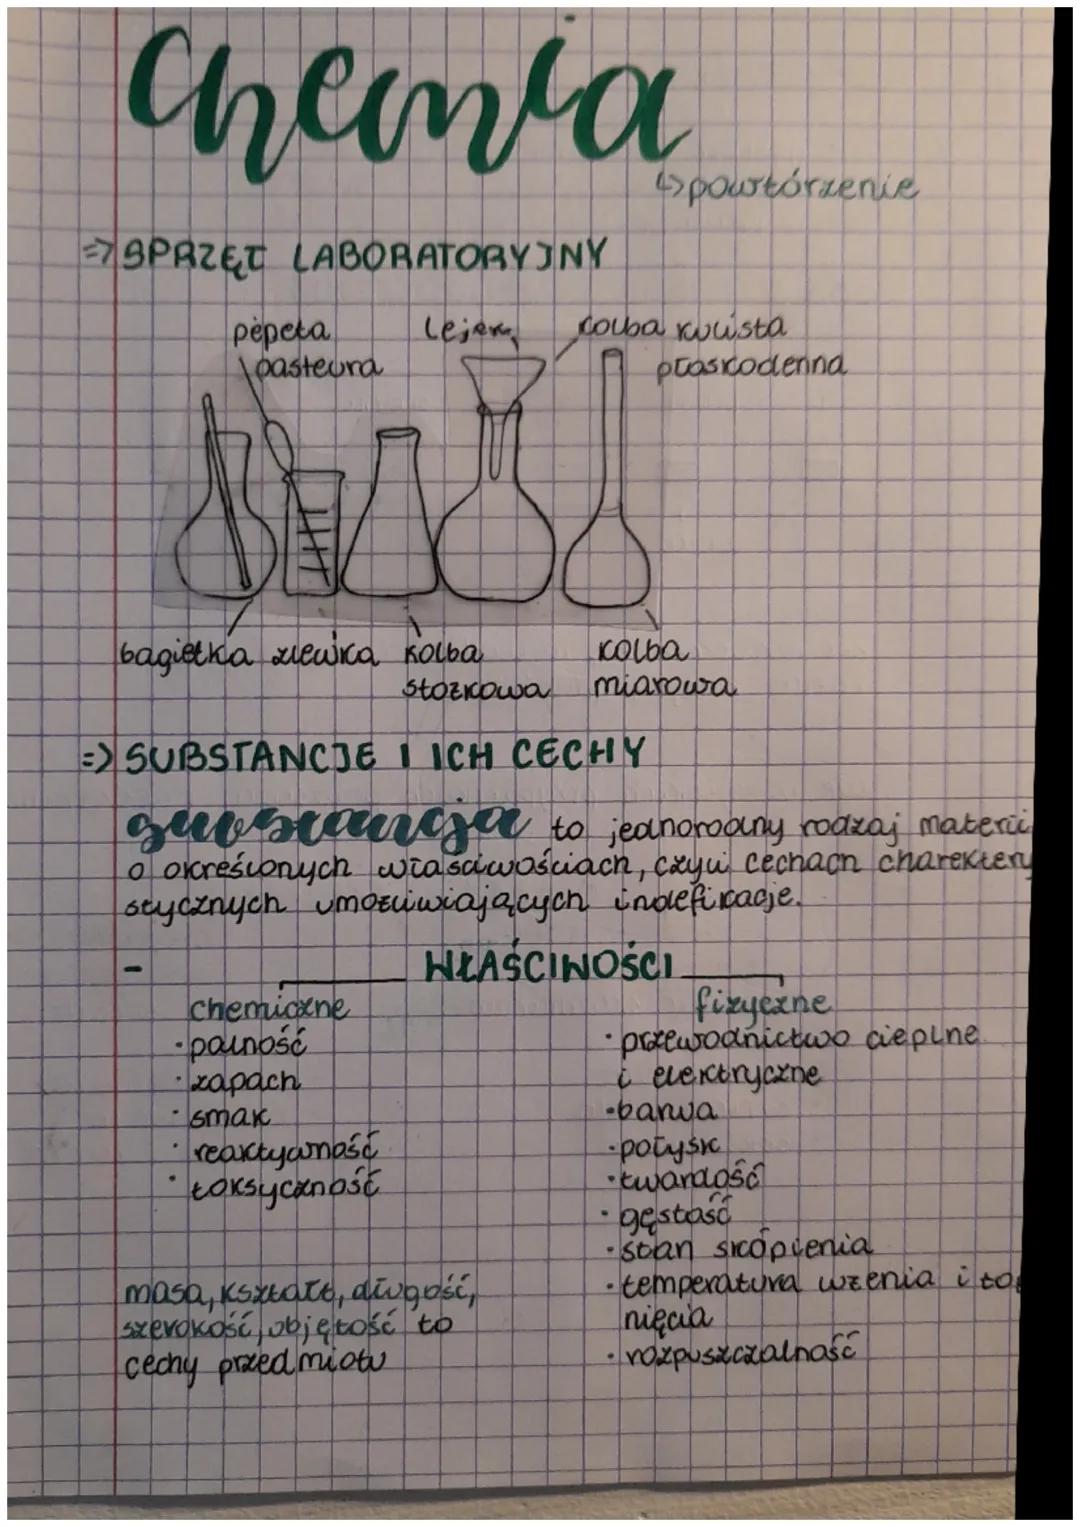 Chemia
↳ powtórzenie
=> SPRZĘT LABORATORYJNY
pepeta lejek kolba kulista
pasteura płaskodenna
bagietka zlewka kolba kolba
stożkowa miarowa
=> SUBSTANCJE I ICH CECHY
substancja to jednorodny rodzaj materii
o określonych właściwościach, czyli cechach charektery
stycznych umożliwiających indefikacje.
- WŁAŚCIWOŚCI
chemiczne fizyczne
· palność · przewodnictwo cieplne
· zapach i elektryczne
· smak · barwa
· reaktywność · połysk
· toksyczność · twardość
· gęstość
· stan skupienia
masa, kształt, długość, · temperatura wzenia i to
szerokość, objętość to nięcia
cechy przedmiotu · rozpuszczalność